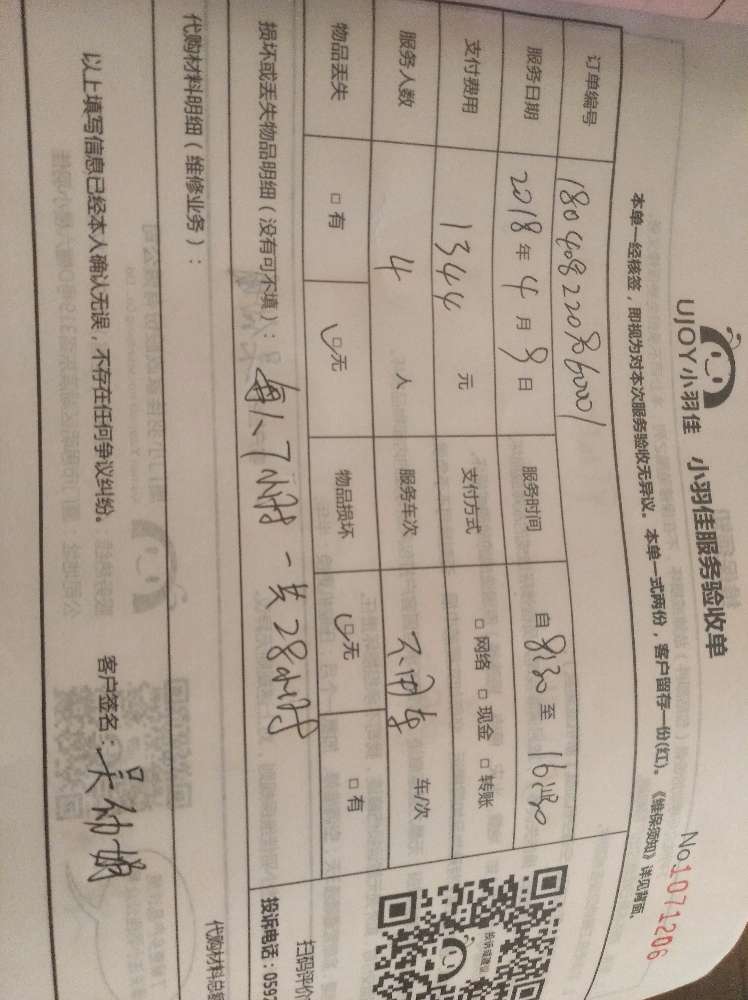 UJOY小羽佳 小羽佳服务验收单
No.1071206
本单一经核签，即视为对本次服务验收无异议。本单一式两份，客户留存一份(红)。《维保须知》详见背面.
订单编号
服务日期 2018年4月8日 服务时间 自8:30至16:30
支付费用 1344元 支付方式 □网络 □现金 □转账
服务人数 4人 服务车次 不用车 车/次
物品丢失 □有 □无 物品损坏 □无 □有
损坏或丢失物品明细（没有可不填）：每人7小时 一共28小时
代购材料明细（维修业务）：
代购材料总
扫码评价
投诉电话：059
以上填写信息已经本人确认无误，不存在任何争议纠纷。 客户签名：吴幼娥